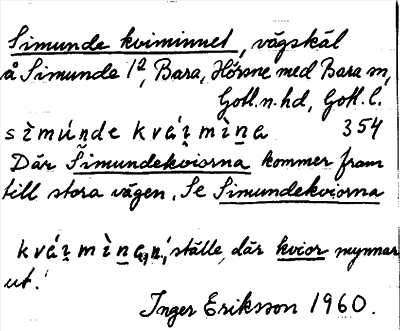 Simunde kviminnet, vägskäl
å Simunde 1², Bara, Hörsne med Bara sn,
Gotl. n. hd, Gotl. l.
sìmúnde kvái̯mìna 354
Där Simundekviorna kommer fram
till stora vägen. Se Simundekviorna
kvái̯mìna, n., 'ställe, där kvior mynnar
ut.'
Inger Eriksson 1960.